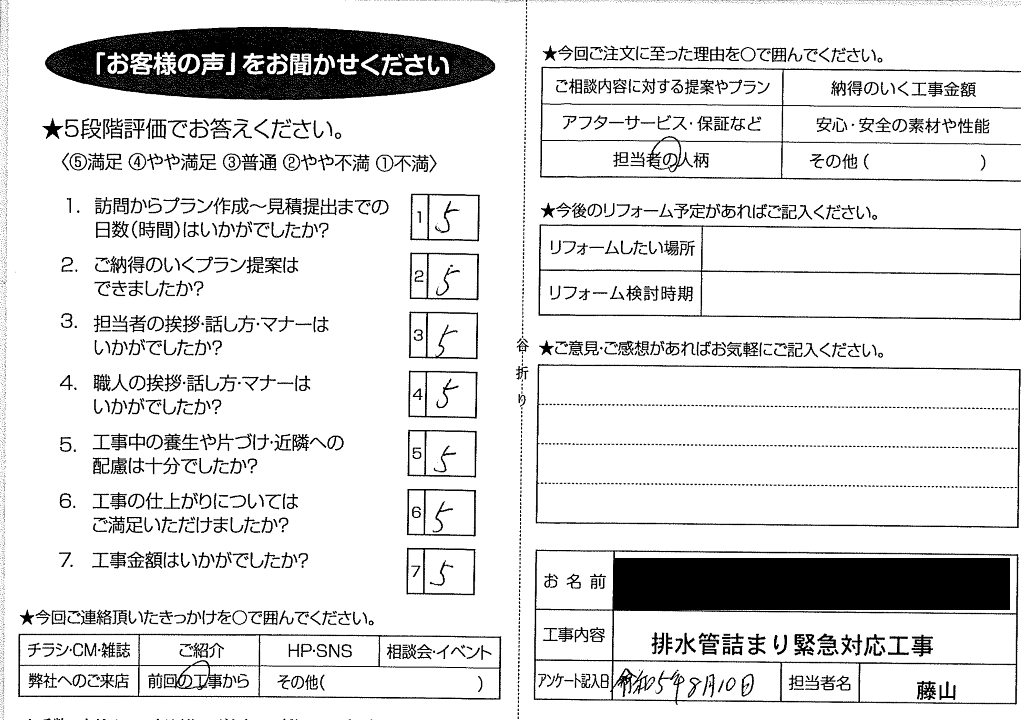 「お客様の声」をお聞かせください
★5段階評価でお答えください。
〈⑤満足 ④やや満足 ③普通 ②やや不満 ①不満〉
1. 訪問からプラン作成～見積提出までの
日数(時間)はいかがでしたか?
1 5
2. ご納得のいくプラン提案は
できましたか?
2 5
3. 担当者の挨拶・話し方・マナーは
いかがでしたか?
3 5
4. 職人の挨拶・話し方・マナーは
いかがでしたか?
4 5
5. 工事中の養生や片づけ・近隣への
配慮は十分でしたか?
5 5
6. 工事の仕上がりについては
ご満足いただけましたか?
6 5
7. 工事金額はいかがでしたか?
7 5
★今回ご連絡頂いたきっかけを○で囲んでください。
チラシ・CM・雑誌 ご紹介 HP・SNS 相談会・イベント
弊社へのご来店 前回の工事から その他( )
谷折り
★今回ご注文に至った理由を○で囲んでください。
ご相談内容に対する提案やプラン 納得のいく工事金額
アフターサービス・保証など 安心・安全の素材や性能
担当者の人柄 その他( )
★今後のリフォーム予定があればご記入ください。
リフォームしたい場所
リフォーム検討時期
★ご意見・ご感想があればお気軽にご記入ください。
お名前
工事内容 排水管詰まり緊急対応工事
アンケート記入日 令和5年8月10日 担当者名 藤山